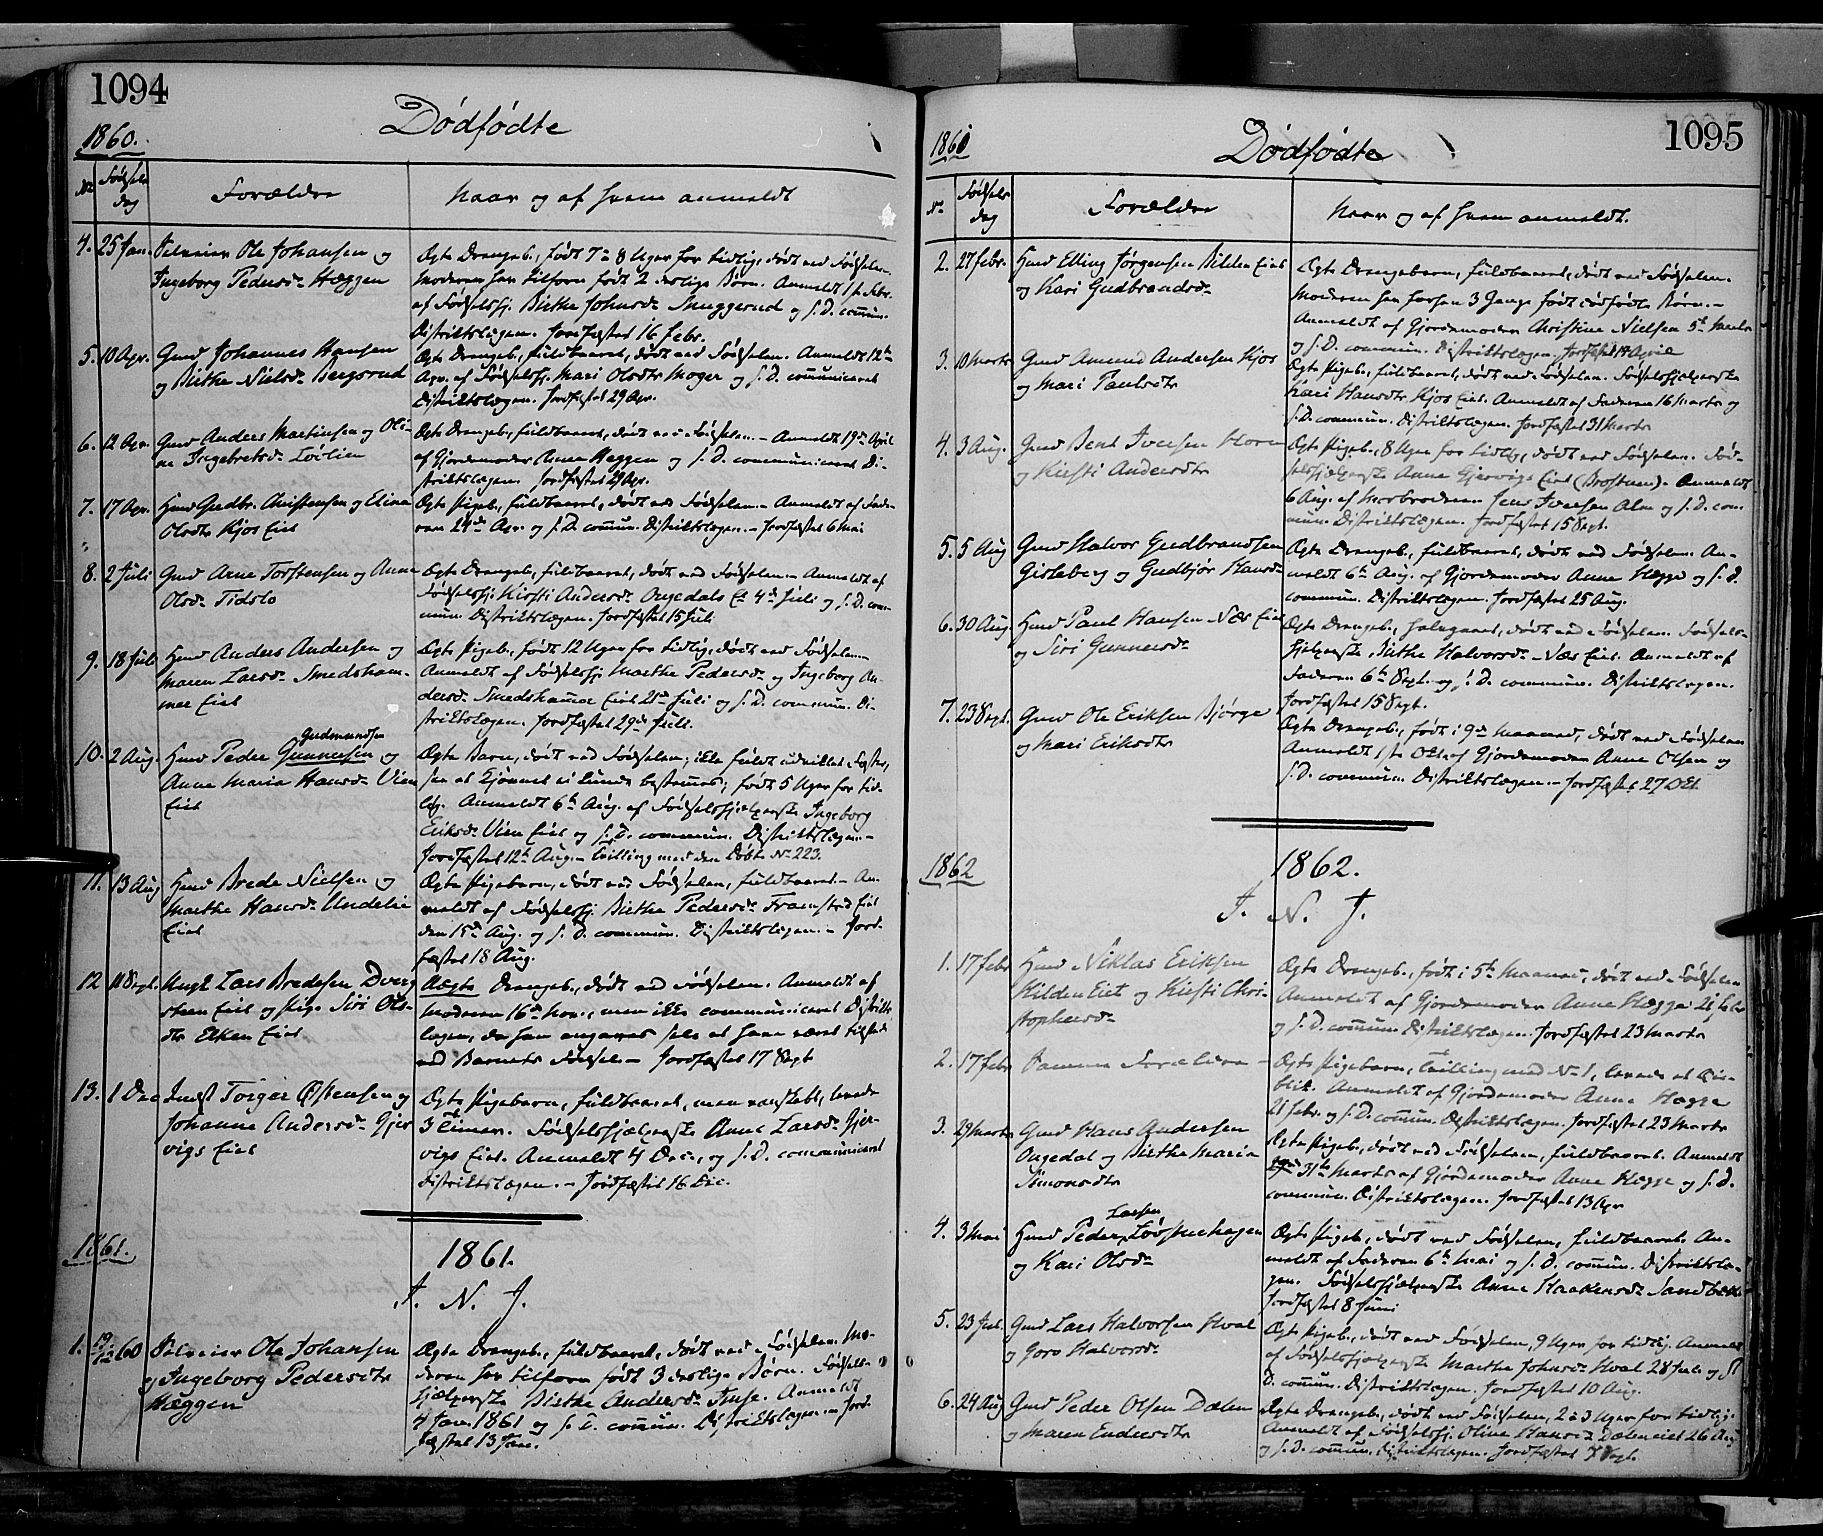 1094
Dødfødte
1860.
No Fødsels dag
Forældre
Naar og af hvem anmeldt
4. 25 Jan. Selveier Ole Johansen og
Ingeborg Pedersdr Hæggen
Ægte Drengeb., født 7 a 8 Uger for tidlig, dødt ved Fødselen.
Moderen har tilforn født 2 Børn. Anmeldt 1ste Febr.
af Fødselshj. Birthe Johnsdr Snuggerud og s. D. commun.
Distriktslægen. Jordfæstet 16 Febr.
5. 10 Apr. Gmd Johannes Hansen
og Birthe Nielsdr Bergsrud
Ægte Drengeb., fuldbaaret, dødt ved Fødselen. Anmeldt 12te
Apr. af Fødselshj. Mari Olsdtr Moger og s. D. communiceret
Distriktslægen. Jordfæstet 29 Apr.
6. 12 Apr. Gmd Anders Martinsen og Oli-
ne Ingebretsdr Løvlien
Ægte Drengeb., fuldbaaret, dødt ved Fødselen. - Anmeldt 19de April
af Gjordemoder Anne Hæggen og s. D. communiceret Di-
striktslægen. Jordfæstet 29 Apr.
7. 17 Apr. Hmd Gudbr. Christensen og Eline
Olsdtr Kjos Eiet
Ægte Pigeb., fuldbaaret, dødt ved Fødselen - Anmeldt af Fade-
ren 24de Apr. og s. D. commun. Distriktslægen. - Jordfæstet 6 Mai
8. 2 Juli Gmd Arne Torstensen og Anne
Olsdr Tidslo
Ægte Drengeb., fuldbaaret, dødt ved Fødselen. - Anmeldt af
Fødselshj. Kirsti Andersdr Ongedals Et 4de Juli og s. D. com-
mun. Distriktslægen. Jordfæstet 15 Juli
9. 18 Juli Hmd Anders Andersen og
Maren Larsdr Smedsham-
mer Eiet
Ægte Pigeb., født 12 Uger for tidlig, dødt ved Fødselen. -
Anmeldt af Fødselshj. Marthe Pedersdr og Ingeborg An-
dersdr Smedshammer Eiet 21de Juli og s. D. commun. Di-
striktslægen. Jordfæstet 29de Juli.
Gudmundsen
10. 2 Aug. Hmd Peder Gunnersen og
Anne Maria Hansdr Vien
Eiet
Ægte Barn, dødt ved Fødselen; ikke fuldt udviklet Foster,
saa at Kjønnet ei kunde bestemmes; født 5 Uger for tid-
lig. Anmeldt 6te Aug. af Fødselshjelperske Ingeborg
Eriksdr Vien Eiet og s. D. commun. Distriktslægen. -
Jordfæstet 12te Aug. - Tvilling med den Døbte No 223.
11. 13 Aug Hmd Brede Nielsen og
Marthe Hansdr Undelie
Eiet
Ægte Pigebarn, dødt ved Fødselen, fuldbaaret. - An-
meldt af Fødselshj. Birthe Pedersdr Framstad Eiet
den 15de Aug. og s. D. commun. Distriktslægen. - Jord-
fæstet 18 Aug.
12 11 Sept. Ungk. Lars Bredesen Dverg
steen Eiet og Pige Siri Ols-
dtr Elken Eiet
Uægte Drengeb., dødt ved Fødselen. Anmeldt af
Moderen 16de , men ikke communiceret Distrikts-
lægen, da han angaves selv at have været tilstede
ved Barnets Fødsel. - Jordfæstet 17 Sept
13. 1 Dec Inds Torger Østensen og
Johanne Andersdr Gjer
vigs Eiet
Ægte Pigebarn, fuldbaaret, men vanskabt, levede
3 Timer. Fødselshjelperske Anne Larsdr Gjer-
vigs Eiet. Anmeldt 4 Dec., og s. D. communiceret
Distriktslægen. - Jordfæstet 16 Dec.
1861.
1861.
I. N. J.
1. 19/12 60 Selveier Ole Johansen
og Ingeborg Pedersdtr
Hæggen
Ægte Drengeb., fuldbaaret, dødt ved Fødselen. Mo-
deren har tilforn født 3 Børn. Fødsels-
hjelperske Birthe Andersdr . Anmeldt
4 Jan. 1861 og s. D. commun. Distriktslægen. - Jord-
fæstet 13 Jan.
1095
1861
Dødfødte
No Fødsels dag
Forældre
Naar og af hvem anmeldt.
2. 27 Febr. Hmd Elling Jørgensen Eiet
og Kari Gudbrandsdr
Ægte Drengebarn, fuldbaaret, dødt ved Fødselen.
Moderen har forhen 3 Gange født dødfødte Børn. -
Anmeldt af Gjordemoder Christine Nielsen 5te Marts
og s. D. commun. Distriktslægen. Jordfæstet 14 April
3. 10 Marts Gmd Amund Andersen Kjos
og Mari Paulsdtr
Ægte Pigeb., fuldbaaret, dødt ved Fødselen. Fødselshjelperske
Kari Hansdtr Kjos Eiet. Anmeldt af Faderen 16 Marts og
s. D. commun. Distriktslægen. Jordfæstet 31 Marts
4. 3 Aug. Gmd Bent Iversen Horn
og Kirsti Andersdtr
Ægte Pigeb., 8 Uger for tidlig, dødt ved Fødselen. Fød-
selshjelperske Anne Gjervigs Eiet - Anmeldt
6 Aug. af Morbroderen Jens Iversen Alm og s. D. com-
mun. Distriktslægen. Jordfæstet 15 Sept.
5. 5 Aug Gmd Halvor Gudbrandsen
Gisleberg og Gudbjør Hansdr
Ægte Drengeb., fuldbaaret, dødt ved Fødselen. An-
meldt 6te Aug. af Gjordemoder Anne Hægge og s. D.
commun. Distriktslægen. Jordfæstet 25 Aug.
6. 30 Aug. Hmd Paul Hansen Næs Eiet
og Siri Gunnersdr
Ægte Drengeb., , dødt ved Fødselen. Fødsels-
hjelperske Birthe Halvorsdr Næs Eiet. Anmeldt af
Faderen 6te Sept. og s. D. commun. Distriktslægen.
Jordfæstet 15 Sept.
7. 23 Sept. Gmd Ole Eriksen Bjørge
og Mari Eriksdtr
Ægte Drengeb., født i 9de Maaned, dødt ved Fødselen
Anmeldt 1ste Okt. af Gjordemoder Anne Olsen og
s. D. commun. Distriktslægen. - Jordfæstet 27 Okt.
1862
1862.
I. N. J.
1. 17 Febr Hmd Niklas Eriksen
Hilden Eiet og Kirsti Chri-
stophersdr
Ægte Drengeb., født i 5te Maaned, dødt ved Fødselen
Anmeldt af Gjordemoder Anne Hægge 21 Febr
og s. D. commun. Distriktslægen. Jordfæstet 23 Marts
2. 17 Febr Samme Forældre -
Ægte Pigebarn, Tvilling med No 1, levede et Øie-
blik. Anmeldt af Gjordemoder Anne Hægge
21 Febr. og s. D. commun. Distriktslægen. Jordfæstet 23 Marts
3. 29 Marts Gmd Hans Andersen
Ongedal og Birthe Maria
Simonsdtr
Ægte Pigeb., dødt ved Fødselen, fuldbaaret. Anmeldt
31te Marts af Gjordemoder Anne Hægge og s. D.
commun. Distriktslægen. Jordfæstet 13 Apr
Larsen
4. 3 Mai Hmd Peder Løvstuehagen
og Kari Olsdr
Ægte Pigeb., dødt ved Fødselen, fuldbaaret. An-
meldt af Faderen 6te Mai og s. D. commun. Distriktslæ-
gen. Fødselshjelperske Anne Haakensdr Sandbæk
Jordfæstet 8 Juni
5. 23 Juli Gmd Lars Halvorsen Hval
og Goro Halvorsdr
Ægte Pigeb., dødt ved Fødselen, 9 Uger for tidlig. Anmeldt
af Fødselshjelperske Marthe Johnsdr Hval 28 Juli og s.
D. commun. Distriktslægen. Jordfæstet 10 Aug.
6. 24 Aug Gmd Peder Olsen Dælen
og Maren Endersdtr
Ægte Drengeb., dødt ved Fødselen, 2 a 3 Uger for tidlig.
Anmeldt af Fødselshj. Oline Hansdr Dæleneiet 26 Aug
og s. D. commun. Distriktslægen. Jordfæstet 7 Sept.